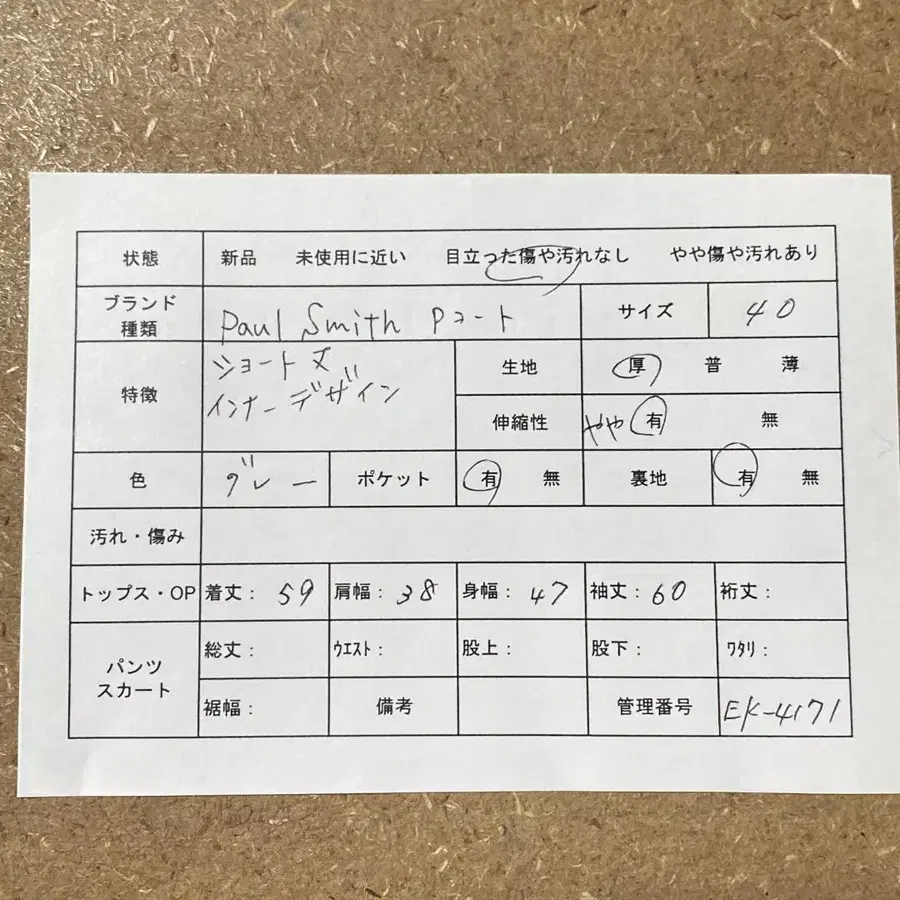 状態 新品 未使用に近い 目立った傷や汚れなし やや傷や汚れあり
ブランド
種類
Paul Smith Pコート
サイズ 40
特徴
ショート丈
インナーデザイン
生地 厚 普 薄
伸縮性 やや 有 無
色 グレー ポケット 有 無 裏地 有 無
汚れ・傷み
トップス・OP 着丈: 59 肩幅: 38 身幅: 47 袖丈: 60 裄丈:
パンツ
スカート
総丈: ウエスト: 股上: 股下: ワタリ:
裾幅: 備考 管理番号 EK-4171